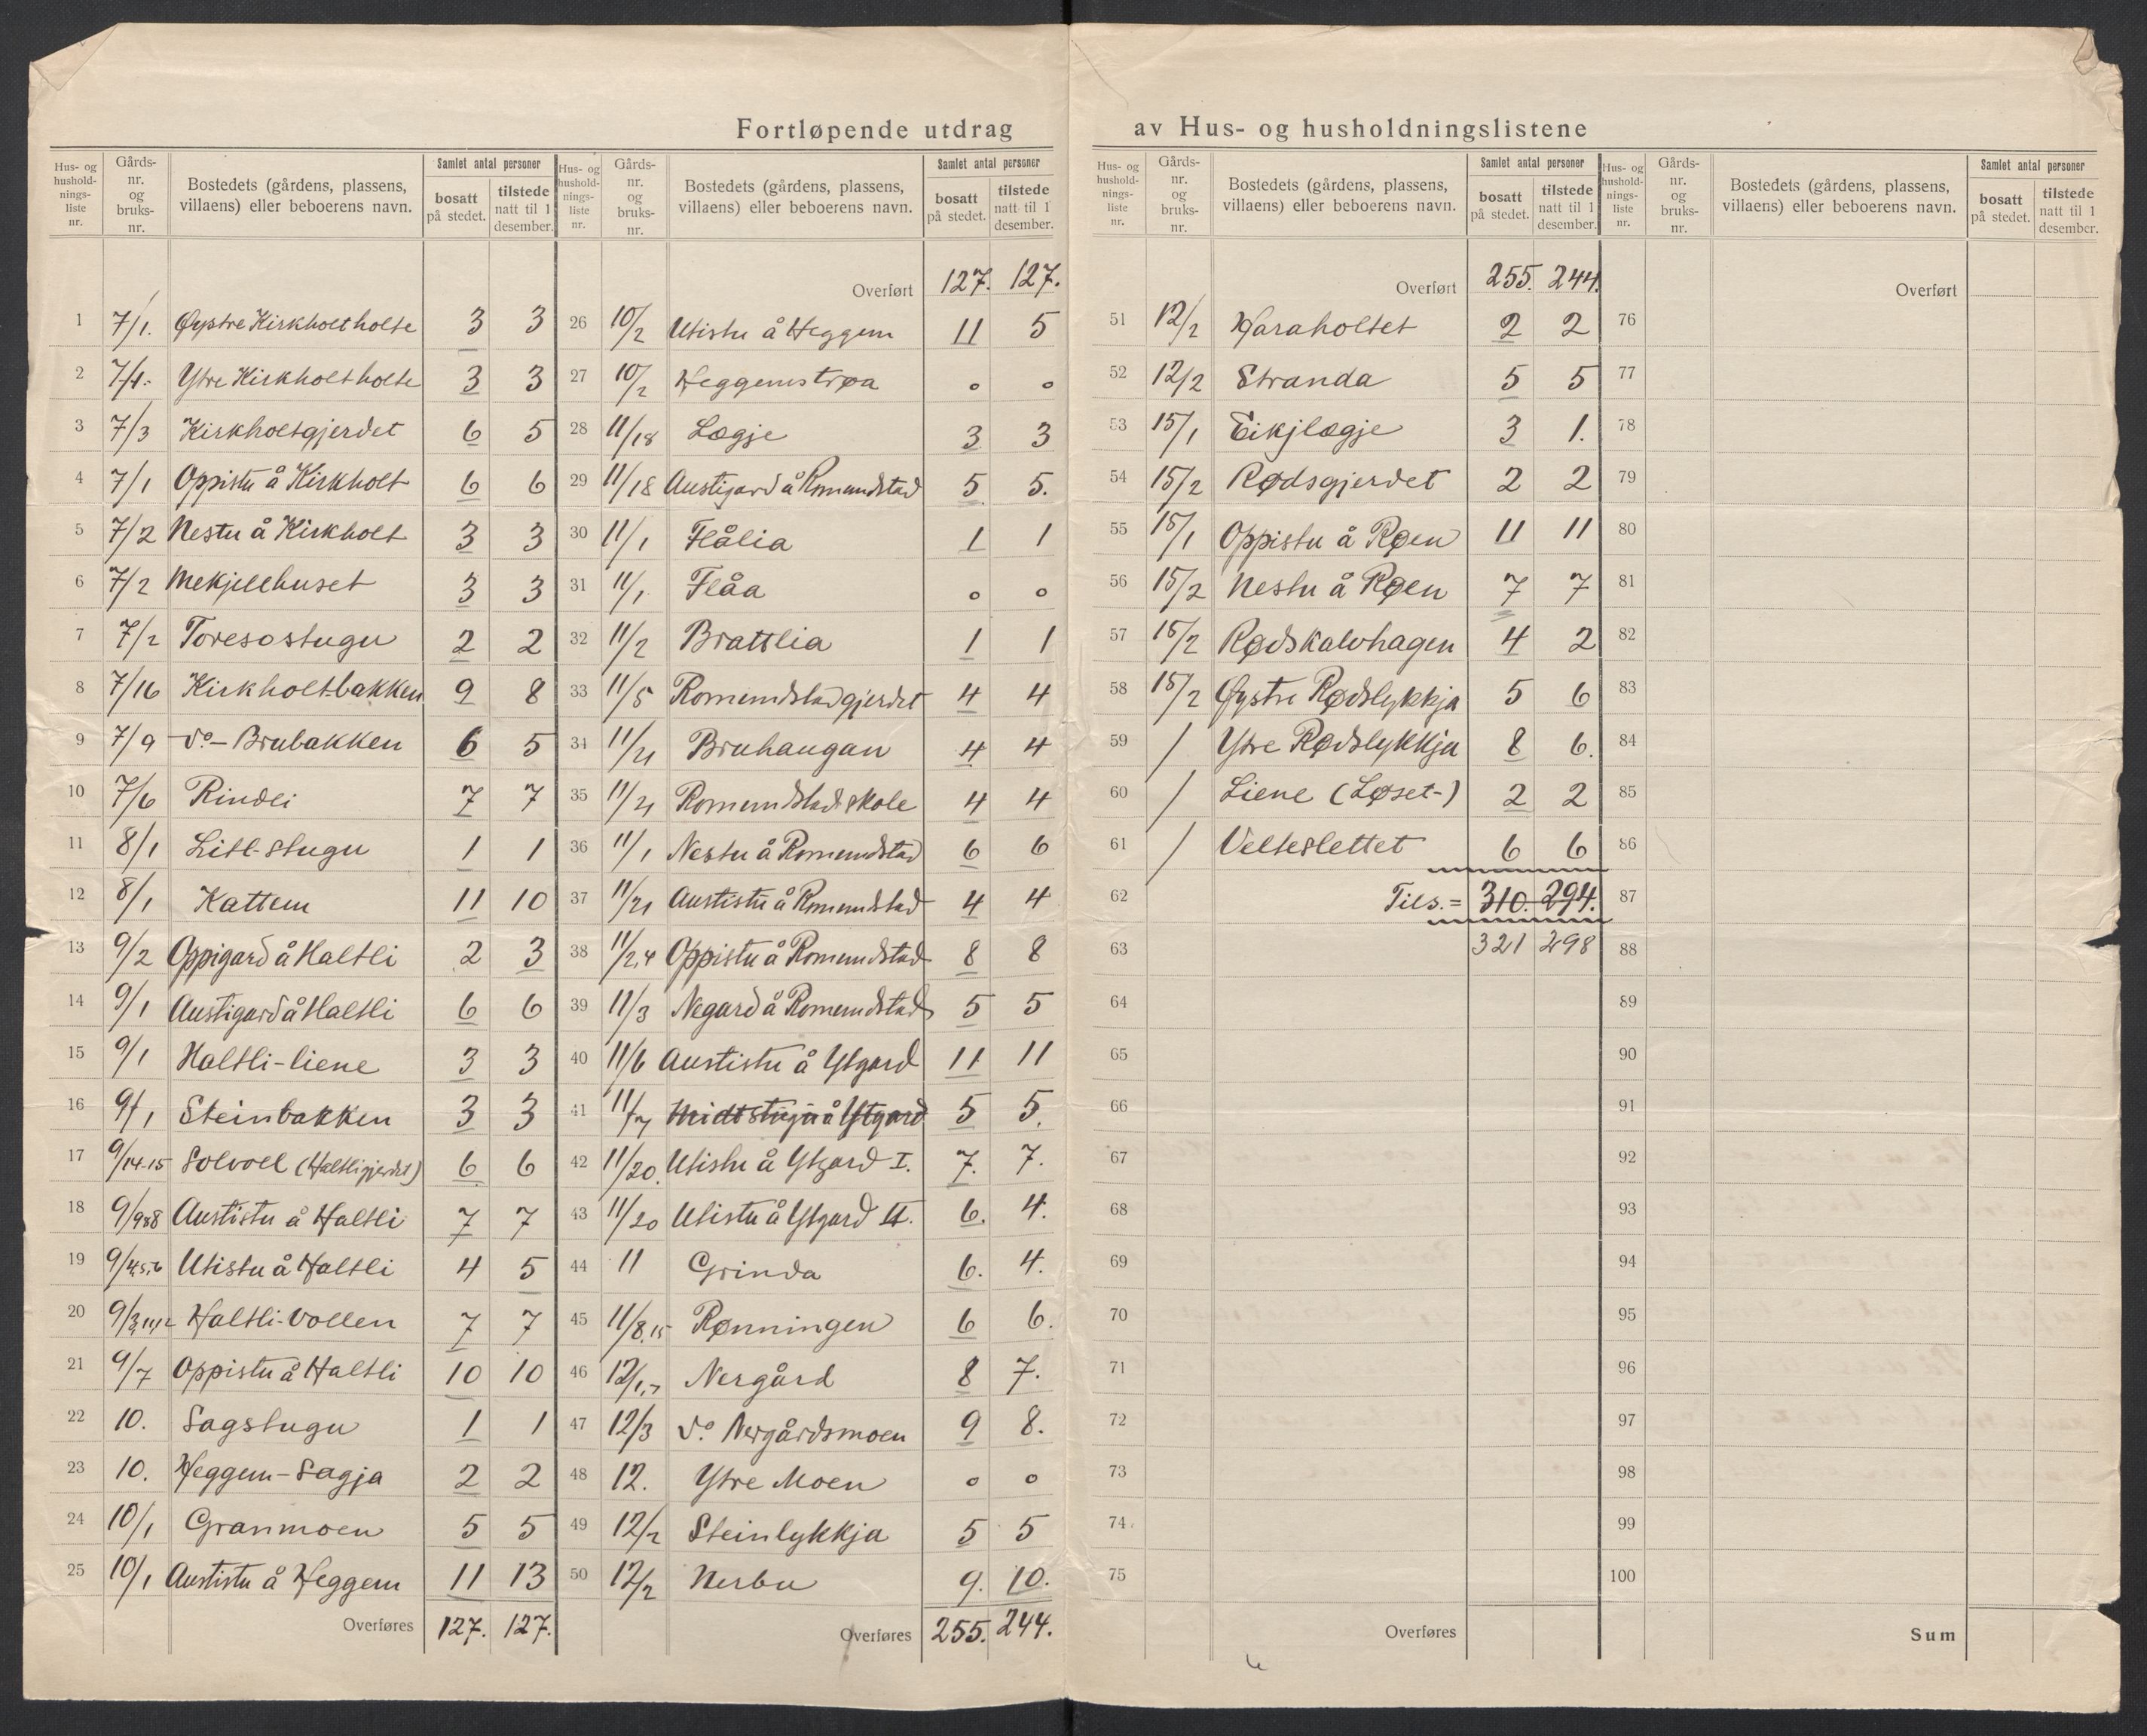 Fortløpende utdrag av Hus- og husholdningslistene
Hus- og husholdnings-liste nr. | Gårds-nr. og bruks-nr. | Bostedets (gårdens, plassens, villaens) eller beboerens navn. | Samlet antal personer | bosatt på stedet. | tilstede natt til 1 desember.
1 7/1. Øystre Kirkholtholte 3 3
2 7/1.- Ytre Kirkholtholte 3 3
3 7/3 Kirkholtgjerdet 6 5
4 7/1 Oppistu å Kirkholt 6 6
5 7/2 Nestu å Kirkholt 3 3
6 7/2 Mekjellhuset 3 3
7 7/2 Toresostugu 2 2
8 7/16 Kirkholtbakken 9 8
9 7/9 -do- Brubakken 6 5
10 7/6 Rindli 7 7
11 8/1 Litl-stugu 1 1
12 8/1 Kattem 11 10
13 9/2 Oppigard å Haltli 2 3
14 9/1 Austigard å Haltli 6 6
15 9/1 Haltli-liene 3 3
16 9/1 Steinbakken 3 3
17 9/14-15 Solvoll (Haltligjerdet) 6 6
18 9/9&8 Austistu å Haltli 7 7
19 9/4,5,6 Utistu å Haltli 4 5
20 9/3,11,12 Haltli-Vollen 7 7
21 9/7 Oppistu å Haltli 10 10
22 10. Sagstugu 1 1
23 10. Heggem-Sagja 2 2
24 10/1 Granmoen 5 5
25 10/1 Austistu å Heggem 11 13
Overføres 127. 127.
Hus- og husholdnings-liste nr. | Gårds-nr. og bruks-nr. | Bostedets (gårdens, plassens, villaens) eller beboerens navn. | Samlet antal personer | bosatt på stedet. | tilstede natt til 1 desember.
Overført 127. 127.
26 10/2 Utistu å Heggem 11 5
27 10/2 Heggemstrøa 0 0
28 11/18 Lægje 3 3
29 11/18 Austigard å Romundstad 5 5.
30 11/1 Flålia 1 1
31 11/1. Flåa 0 0
32 11/2 Brattlia 1 1
33 11/5 Romundstadgjerdet 4 4
34 11/21 Bruhaugan 4 4
35 11/21 Romundstad skole 4 4
36 11/1 Nestu å Romundstad 6 6
37 11/21 Austistu å Romundstad 4 4
38 11/2,4 Oppistu å Romundstad 8 8
39 11/3 Negard å Romundstad 5 5
40 11/6 Austistu å Ytgard 11 11
41 11/7 Midtstuja å Ytgard 5 5.
42 11/20. Utistu å Ytgard I. 7. 7.
43 11/20 Utistu å Ytgard II. 6. 4.
44 11 Grinda 6. 4.
45 11/8,15 Rønningen 6 6.
46 12/1,7 Nergård 8 7.
47 12/3 do. Nergårdsmoen 9 8.
48 12. Ytre Moen 0 0
49 12/2 Steinlykkja 5 5
50 12/2 Nerbu 9. 10.
Overføres 255. 244.
Hus- og husholdnings-liste nr. | Gårds-nr. og bruks-nr. | Bostedets (gårdens, plassens, villaens) eller beboerens navn. | Samlet antal personer | bosatt på stedet. | tilstede natt til 1 desember.
Overført 255. 244.
51 12/2 Haraholtet 2 2
52 12/2 Stranda 5 5
53 15/1 Eikjlægje 3 1.
54 15/2 Rødsgjerdet 2 2
55 15/1 Oppistu å Røen 11 11
56 15/2 Nestu å Røen 7 7
57 15/2 Rødskalvhagen 4 2
58 15/2 Øystre Rødslykkja 5 6
59 / Ytre Rødslykkja 8 6.
60 / Liene (Løset-) 2 2
61 / Velteslettet 6 6
62 Tils. = 310. 294.
63 321 298
64
65
66
67
68
69
70
71
72
73
74
75
Overføres
Hus- og husholdnings-liste nr. | Gårds-nr. og bruks-nr. | Bostedets (gårdens, plassens, villaens) eller beboerens navn. | Samlet antal personer | bosatt på stedet. | tilstede natt til 1 desember.
Overført
76
77
78
79
80
81
82
83
84
85
86
87
88
89
90
91
92
93
94
95
96
97
98
99
100
Sum